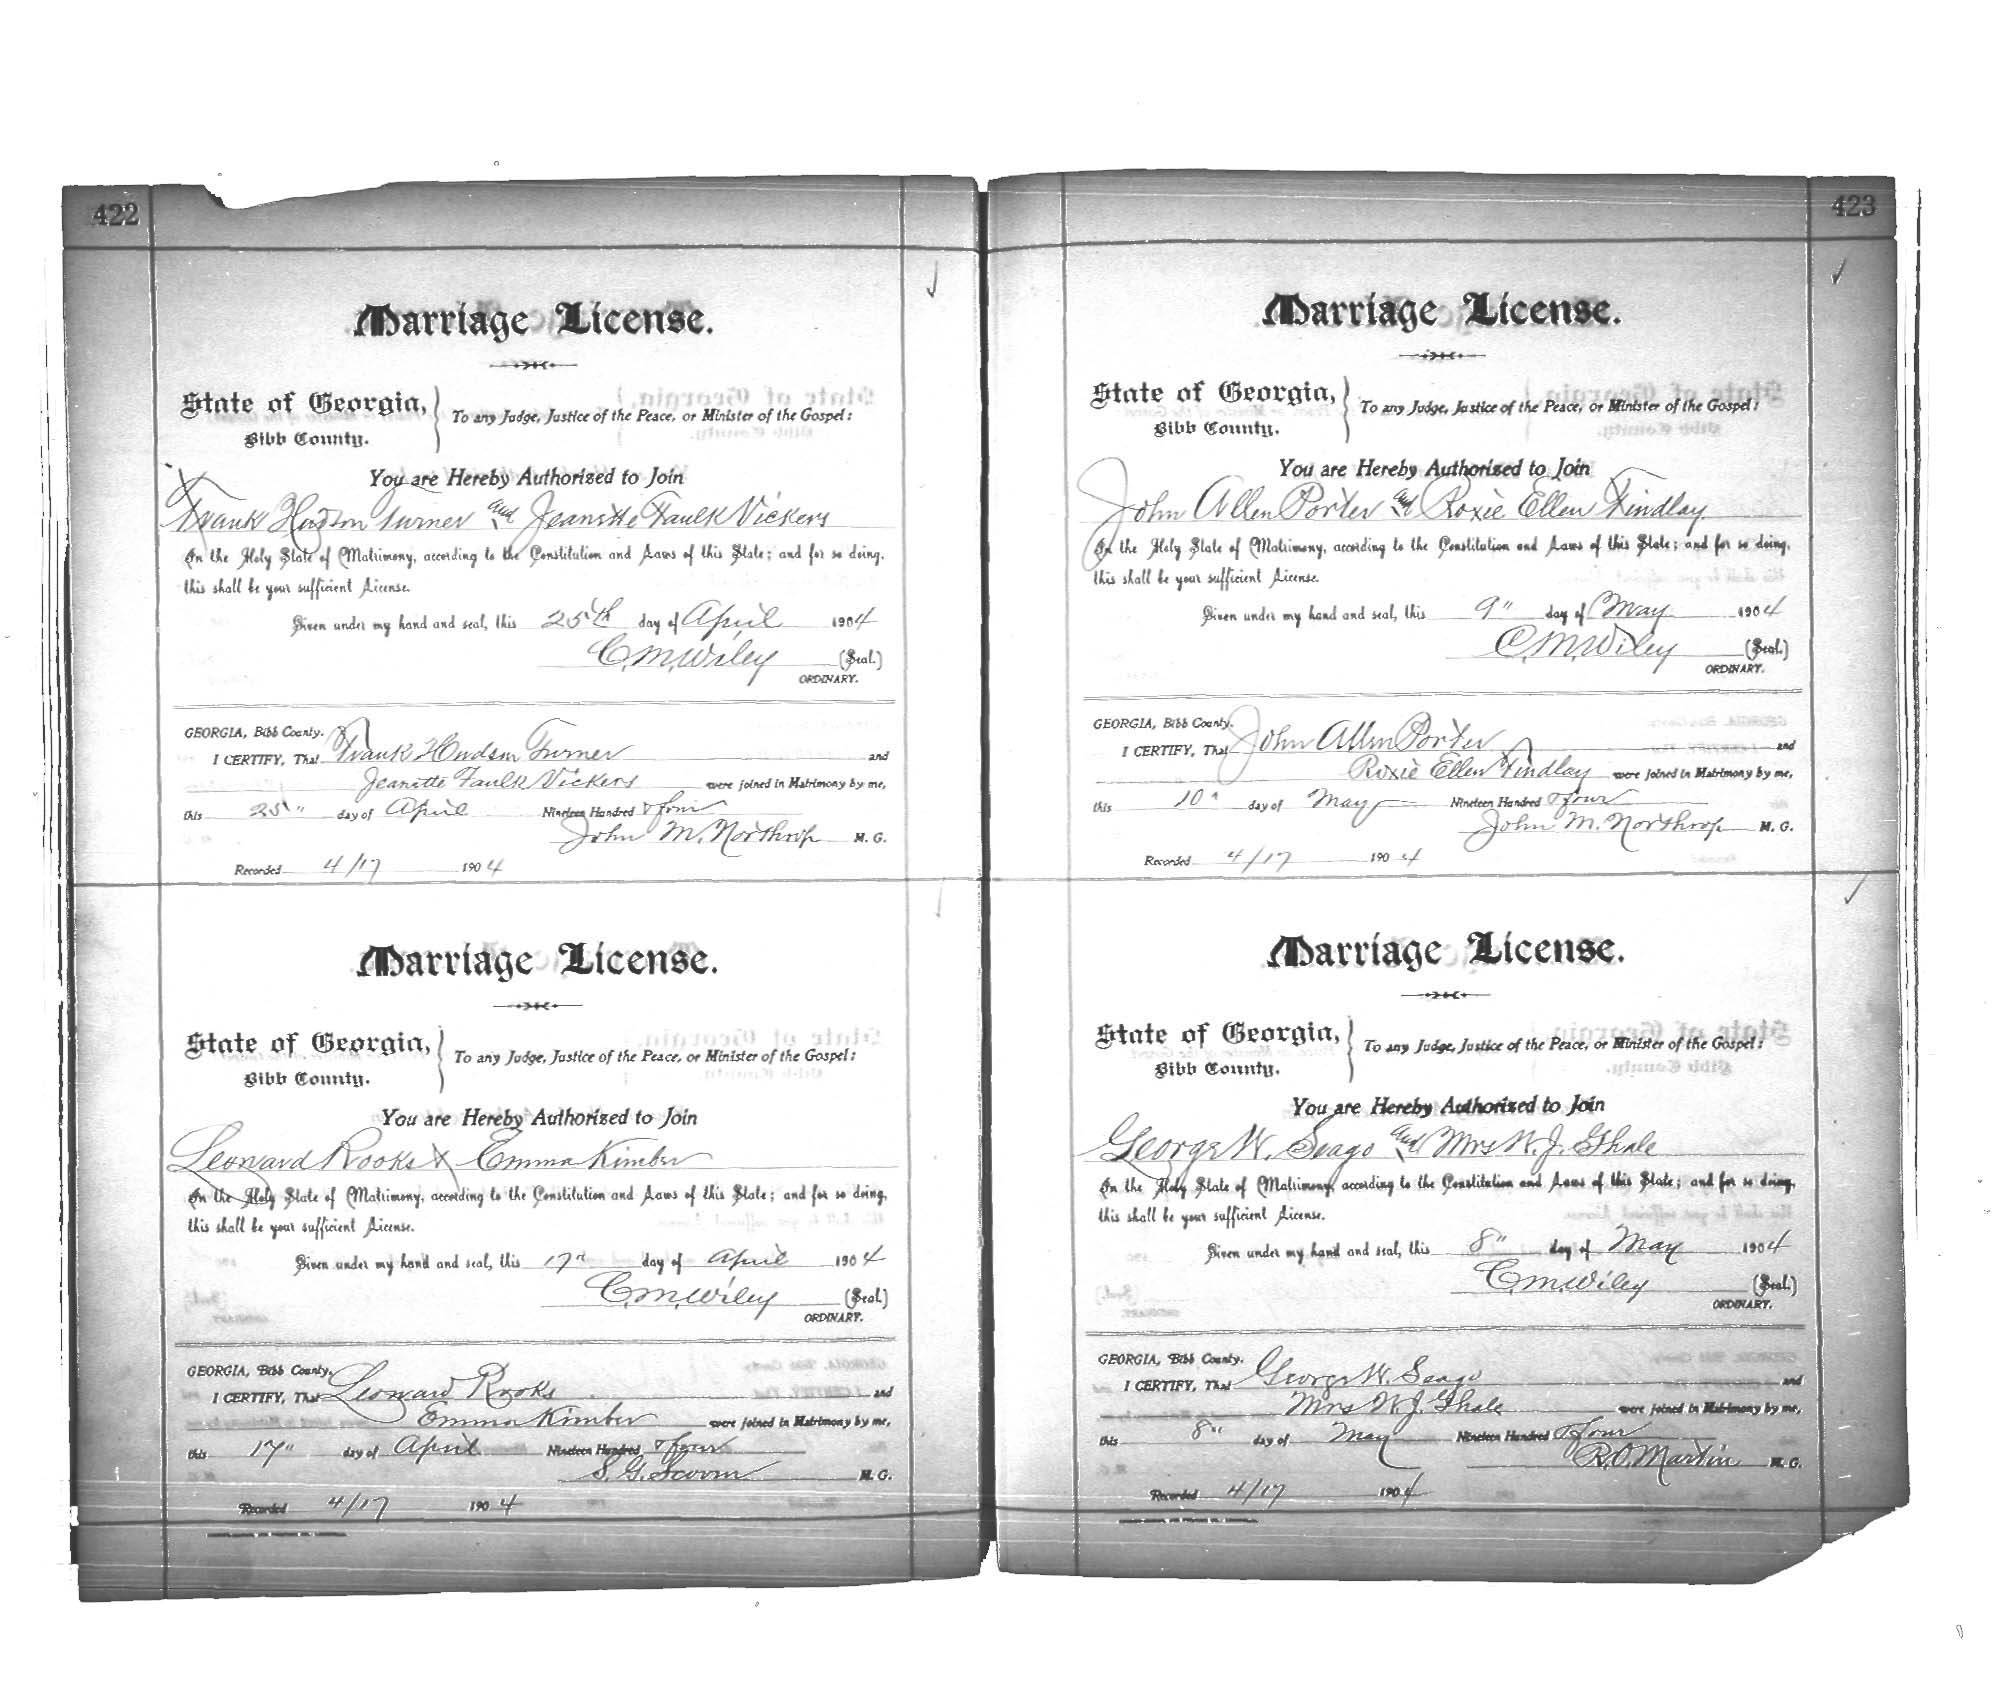 422
Marriage License.
State of Georgia,
Bibb County.
To any Judge, Justice of the Peace, or Minister of the Gospel:
You are Hereby Authorized to Join
Frank Hudson Turner and Jeanette Faulk Vickers
In the Holy State of Matrimony, according to the Constitution and Laws of this State; and for so doing,
this shall be your sufficient License.
Given under my hand and seal, this 25th day of April 1904
C. M. Wiley (Seal.)
ORDINARY.
GEORGIA, Bibb County.
I CERTIFY, That Frank Hudson Turner and
Jeanette Faulk Vickers were joined in Matrimony by me,
this 25" day of April Nineteen Hundred & four
John M. Northrop M. G.
Recorded 4/17 1904
Marriage License.
State of Georgia,
Bibb County.
To any Judge, Justice of the Peace, or Minister of the Gospel:
You are Hereby Authorized to Join
Leonard Rooks & Emma Kimber
In the Holy State of Matrimony, according to the Constitution and Laws of this State; and for so doing,
this shall be your sufficient License.
Given under my hand and seal, this 17" day of April 1904
C. M. Wiley (Seal.)
ORDINARY.
GEORGIA, Bibb County.
I CERTIFY, That Leonard Rooks and
Emma Kimber were joined in Matrimony by me,
this 17" day of April Nineteen Hundred & four
S. G. M. G.
Recorded 4/17 1904
423
Marriage License.
State of Georgia,
Bibb County.
To any Judge, Justice of the Peace, or Minister of the Gospel:
You are Hereby Authorized to Join
John Allen Porter and Roxie Ellen Findlay
In the Holy State of Matrimony, according to the Constitution and Laws of this State; and for so doing,
this shall be your sufficient License.
Given under my hand and seal, this 9" day of May 1904
C. M. Wiley (Seal.)
ORDINARY.
GEORGIA, Bibb County.
I CERTIFY, That John Allen Porter and
Roxie Ellen Findlay were joined in Matrimony by me,
this 10" day of May Nineteen Hundred & four
John M. Northrop M. G.
Recorded 4/17 1904
Marriage License.
State of Georgia,
Bibb County.
To any Judge, Justice of the Peace, or Minister of the Gospel:
You are Hereby Authorized to Join
George W. Seago and Mrs W. J.
In the Holy State of Matrimony, according to the Constitution and Laws of this State; and for so doing,
this shall be your sufficient License.
Given under my hand and seal, this 8" day of May 1904
C. M. Wiley (Seal.)
ORDINARY.
GEORGIA, Bibb County.
I CERTIFY, That George W. Seago and
Mrs W. J. were joined in Matrimony by me,
this 8" day of May Nineteen Hundred & four
R. O. Martin M. G.
Recorded 4/17 1904